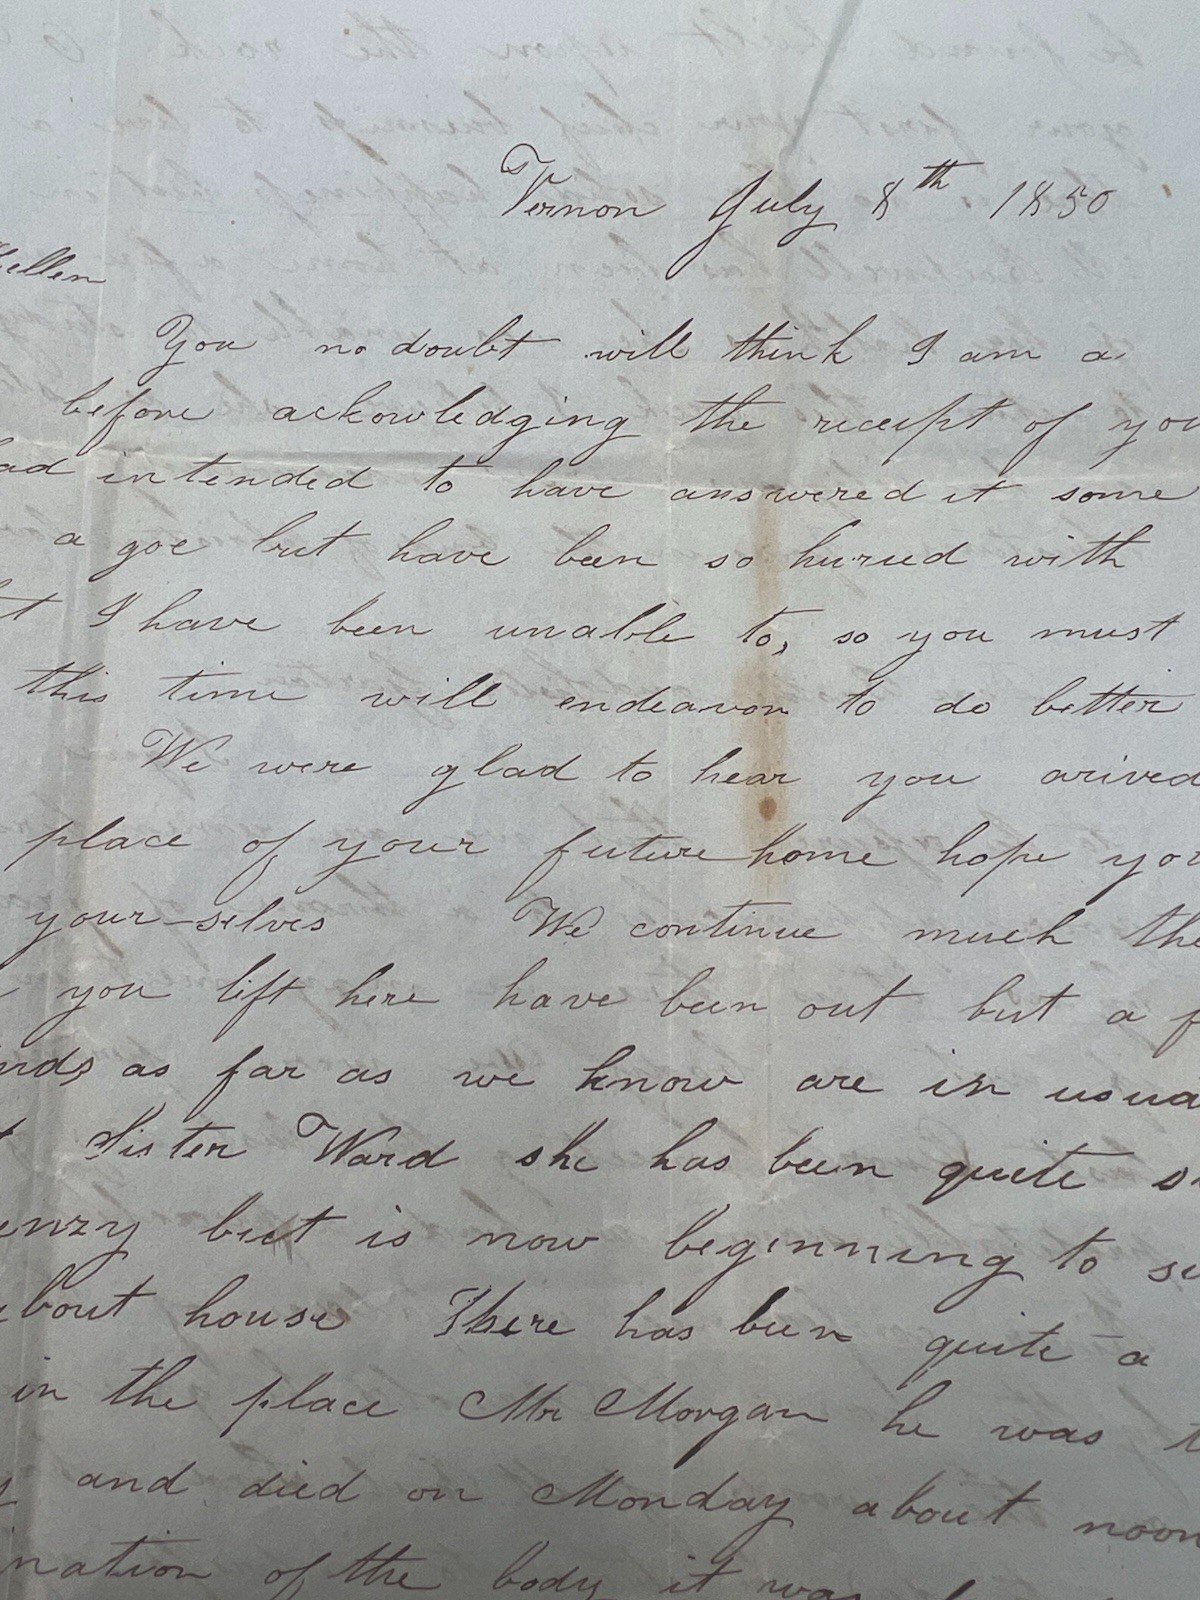 Vernon July 8th 1850
ellen
You no doubt will think I am a
before ackowledging the receipt of you
ad intended to have answered it some
a goe but have been so huried with
t I have been unable to, so you must
this time will endeavor to do better
We were glad to hear you arived
place of your future home hope you
your-selves We continue much the
you left here have been out but a f
nds as far as we know are in usua
t Sister Ward she has been quite s
enzy but is now beginning to si
about house There has been quite a
in the place Mr Morgan he was t
and died on Monday about noon
ination of the body it was